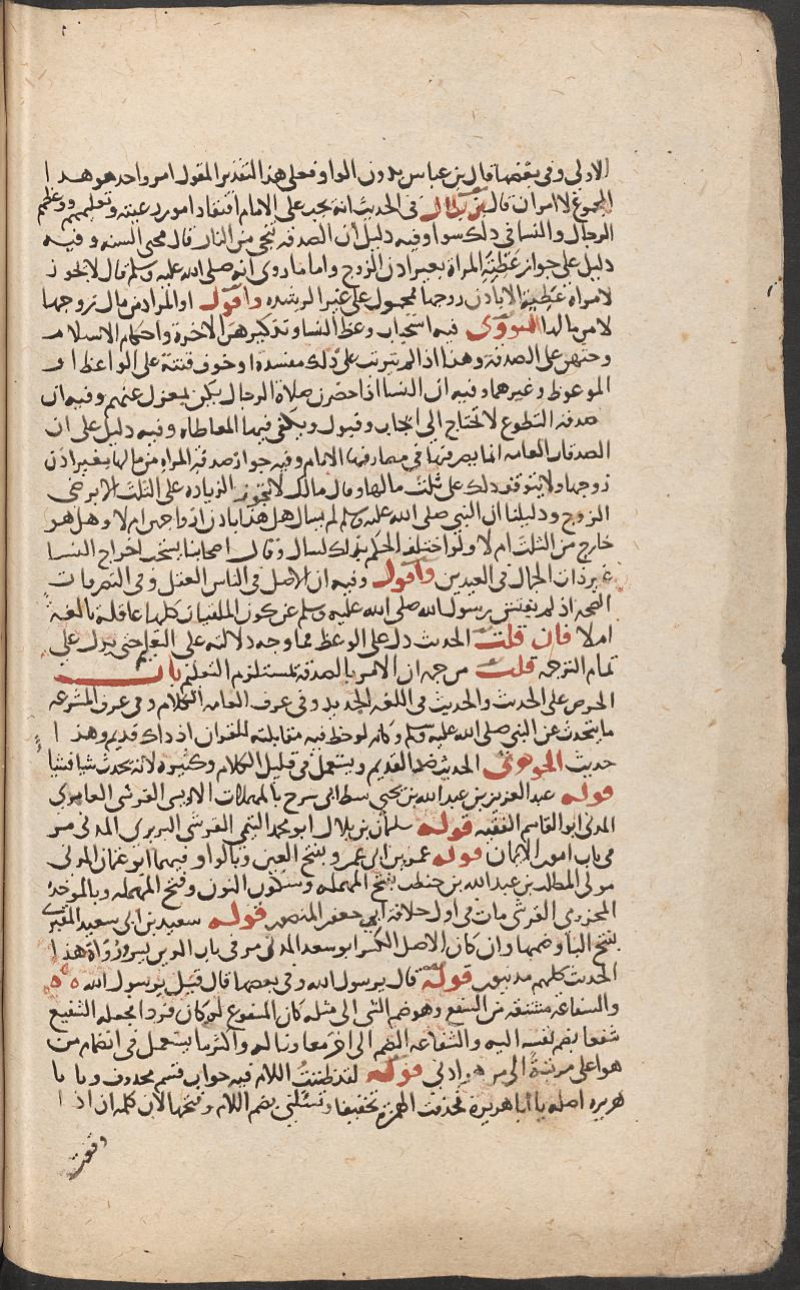 الاولى وفى بعضها قال بن عباس بدون الواو فعلى هذا التقدير المقول امر واحد هو هذا
المجموع لا امران قال بن بطال فى الحديث انه يجب على الامام افتقاد امور رعيته وتعليمهم ووعظهم
الرجال والنسا فى ذلك سوا وفيه دليل ان الصدقه تنجى من النار قال محيى السنه وفيه
دليل على جواز عطية المراة بغير اذن الزوج واما ما روى انه صلى الله عليه وسلم قال لا يجوز
لامراة عطية الا باذن زوجها محمول على غير الرشيده واقول او المراد من مال زوجها
لا من مالها النووى فيه استحباب وعظ النسا وتذكيرهن الاخرة واحكام الاسلام
وحثهن على الصدقة وهذا اذا لم يترتب على ذلك مفسده او خوف فتنة على الواعظ او
الموعوظ وغيرهما وفيه ان النسا اذا حضرن صلاة الرجال يكن بمعزل عنهم وفيه ان
صدقة التطوع لا تحتاج الى ايجاب وقبول ويكفى فيها المعاطاه وفيه دليل على ان
الصدقات العامه انما يصرفها فى مصارفها الامام وفيه جواز صدقة المراة من مالها بغير اذن
زوجها ولا يتوقف ذلك على ثلث مالها وقال مالك لا تجوز الزياده على الثلث الا برضى
الزوج ودليلنا ان النبى صلى الله عليه وسلم لم يسال هل هذا باذن ازواجهن ام لا وهل هو
خارج من الثلث ام لا ولو اختلف الحكم بذلك لسال وقال اصحابنا يستحب اخراج النسا
غير ذات الجمال فى العيدين واقول وفيه ان الاصل فى الناس العقل وفى التصرفات
الصحه اذ لم يفتش رسول الله صلى الله عليه وسلم عن كون الملقيات كلها عاقلة بالغة
ام لا فان قلت الحديث دل على الوعظ فما وجه دلالته على التعليم حتى يدل على
تمام الترجمه قلت من جهة ان الامر بالصدقة مستلزم التعليم باب
الحرص على الحديث والحديث فى اللغه الجديد وفى عرف العامه الكلام وفى عرف المتشرعه
ما يتحدث عن النبى صلى الله عليه وسلم وكانه لوحظ فيه مقابلته للقران اذ ذاك قديم وهذا
حديث الجوهرى الحديث ضد القديم ويستعمل فى قليل الكلام وكثيره لانه يحدث شيا فشيا
قوله عبد العزيز بن عبد الله بن يحيى بن ابى سرح بالمهملات الاويسى القرشى العامرى
المدنى ابو القاسم الفقيه قوله سلمان بن بلال ابو محمد التيمى القرشى البربرى المدنى مر
فى باب امور الايمان قوله عمرو بن ابى عمرو بفتح العين وبالواو فيهما ابو عثمان المدنى
مولى المطلب بن عبد الله بن حنطب بفتح المهمله وسكون النون وفتح المهمله وبالموحده
المخزومى القرشى مات فى اول خلافة ابى جعفر المنصور قوله سعيد بن ابى سعيد المقبرى
بفتح البا وضمها وان كان الاصل الكسر ابو سعد المدنى مر فى باب الدين يسر ورواة هذا
الحديث كلهم مدنيون قوله قال يرسول الله وفى بعضها قال قيل يرسول الله
والشفاعه مشتقه من الشفع وهو ضم الشى الى مثله كان المشفوع له كان فردا فجعله الشفيع
شفعا بضم نفسه اليه والشفاعه الضم الى اخر معاونا له واكثر ما يستعمل فى انضمام من
هو اعلى مرتبة الى من هو ادنى قوله لقد ظننت اللام فيه جواب قسم محذوف ويا با
هريره اصله يا ابا هريرة فحذفت الهمزة تخفيفا وتسئلنى بضم اللام وفتحها لان كلمة ان اذا
وقعت